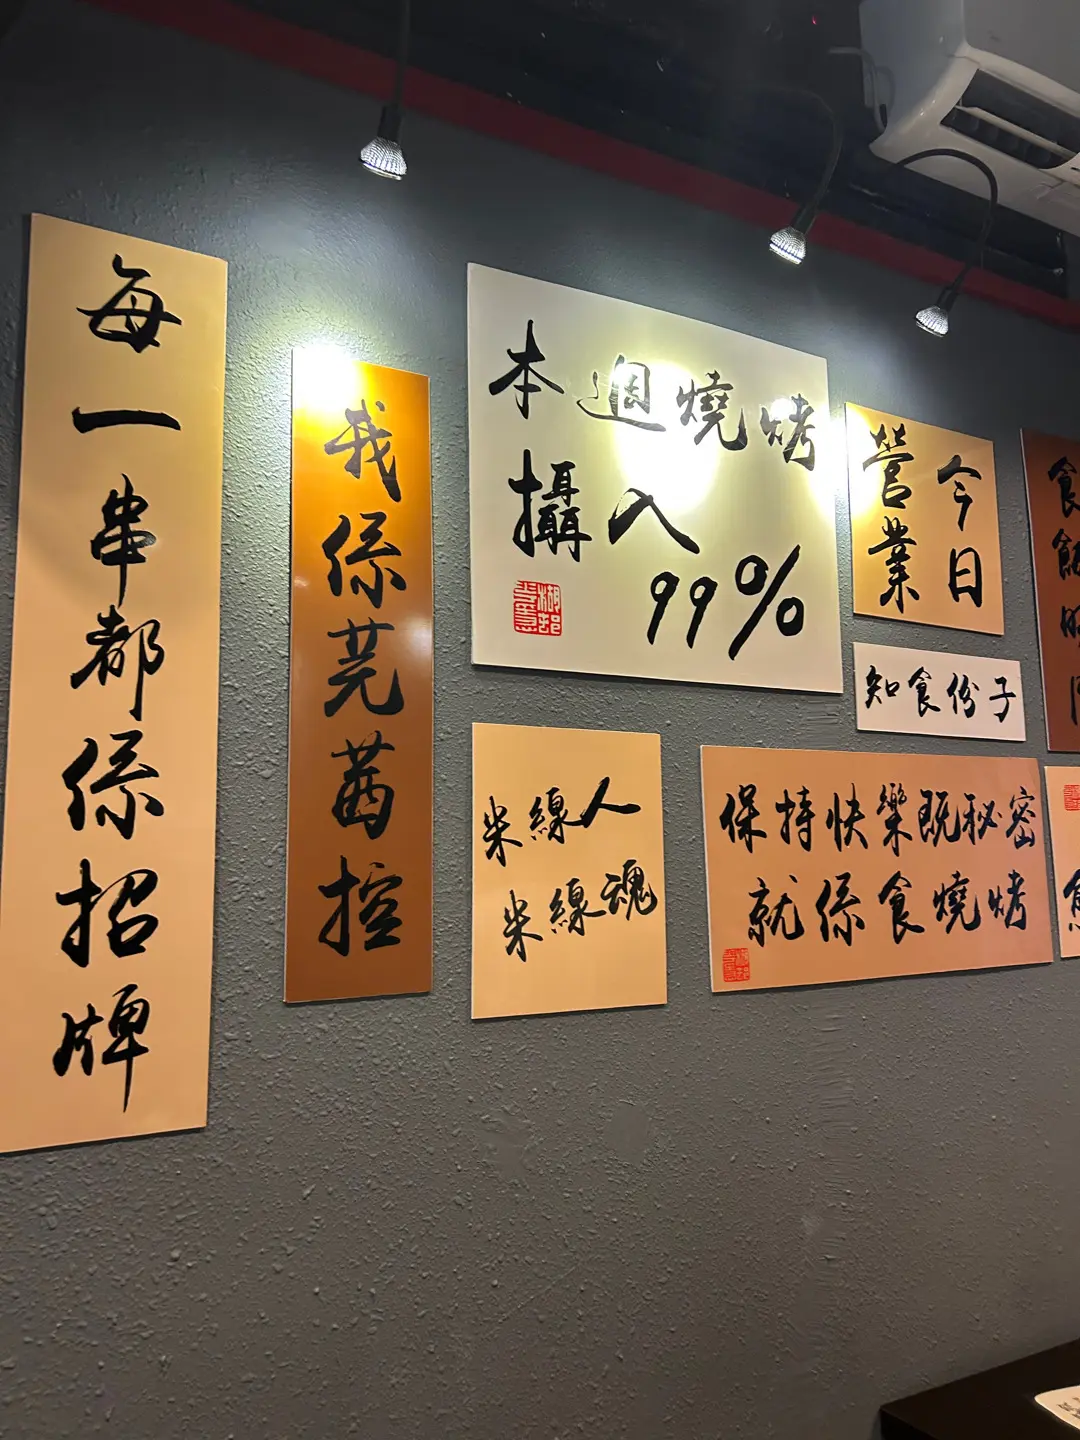 每一串都係招牌
我係芫茜控
本週燒烤
攝入
99%
今日
營業
知食份子
米線人
米線魂
保持快樂既秘密
就係食燒烤
食飯